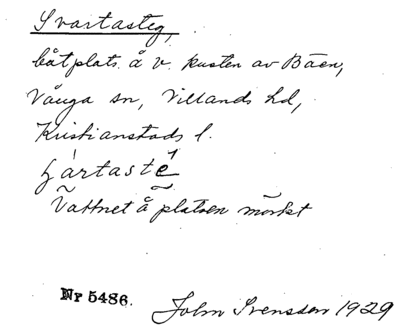 Svartasteg,
båtplats å v. kusten av Båen,
Vånga sn, Villands hd,
Kristianstads l.
Vattnet å platsen mörkt
Nr 5486.
John Svensson 1929